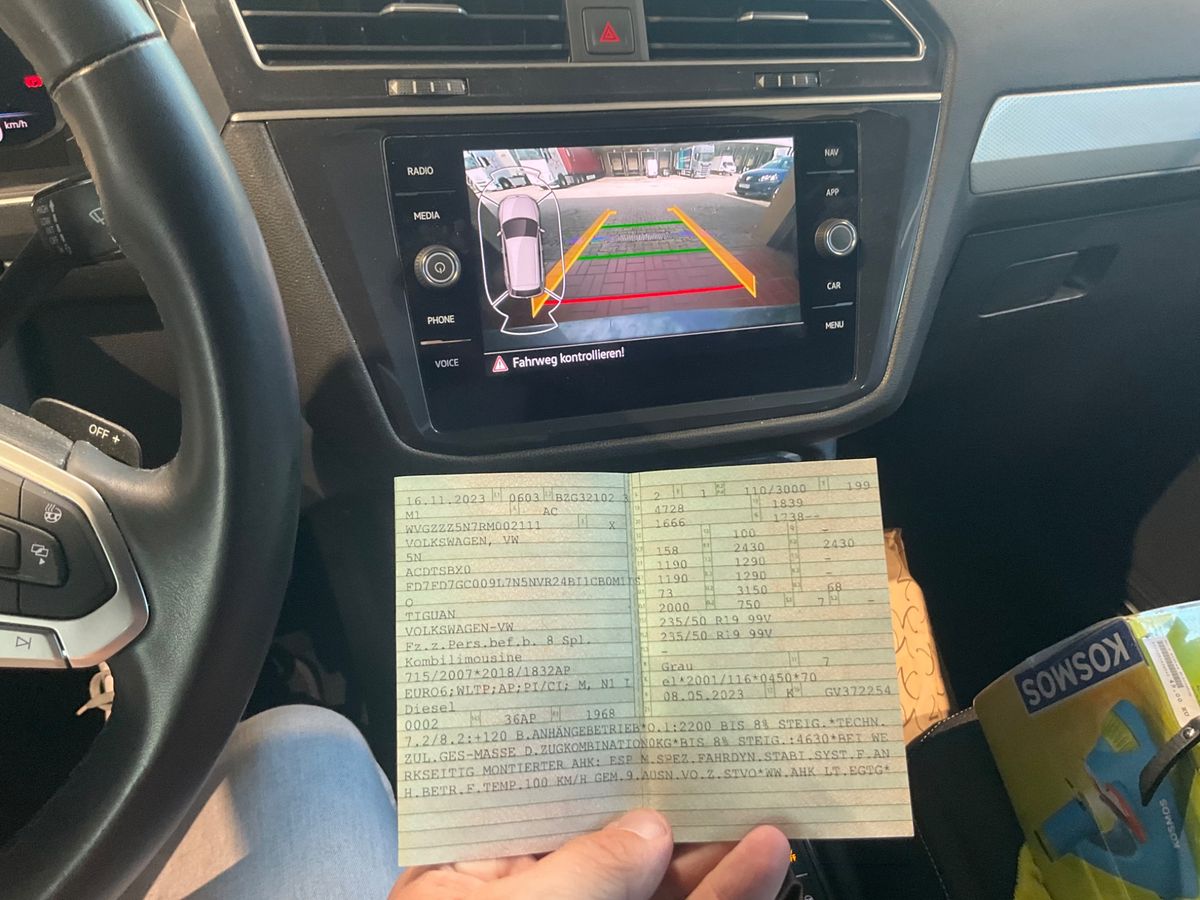 km/h
RADIO
MEDIA
PHONE
VOICE
NAV
APP
CAR
MENU
Fahrweg kontrollieren!
OFF +
16.11.2023 0603 BZG32102 3
M1 AC
WVGZZZ5N7RM002111 X
VOLKSWAGEN, VW
5N
ACDTSBX0
FD7FD7GC009L7N5NVR24BI1CB0M1
0
TIGUAN
VOLKSWAGEN-VW
Fz.z.Pers.bef.b. 8 Spl.
Kombilimousine
715/2007*2018/1832AP
EURO6;WLTP;AP;PI/CI; M, N1 I
Diesel
0002 36AP 1968
2 1 110/3000 199
4728 1839
1666 1738--
100 -
158 2430 2430
1190 1290 -
1190 1290 -
73 3150 68
2000 750 7 -
235/50 R19 99V
235/50 R19 99V
-
Grau 7
e1*2001/116*0450*70
08.05.2023 K GV372254
7.2/8.2:+120 B.ANHÄNGEBETRIEB*O.1:2200 BIS 8% STEIG.*TECHN.
ZUL.GES-MASSE D.ZUGKOMBINATION0KG*BIS 8% STEIG.:4630*BEI WE
RKSEITIG MONTIERTER AHK: ESP M.SPEZ.FAHRDYN.STABI.SYST.F.AN
H.BETR.F.TEMP.100 KM/H GEM.9.AUSN.VO.Z.STVO*WW.AHK LT.EGTG*
KOSMOS
KOSMOS